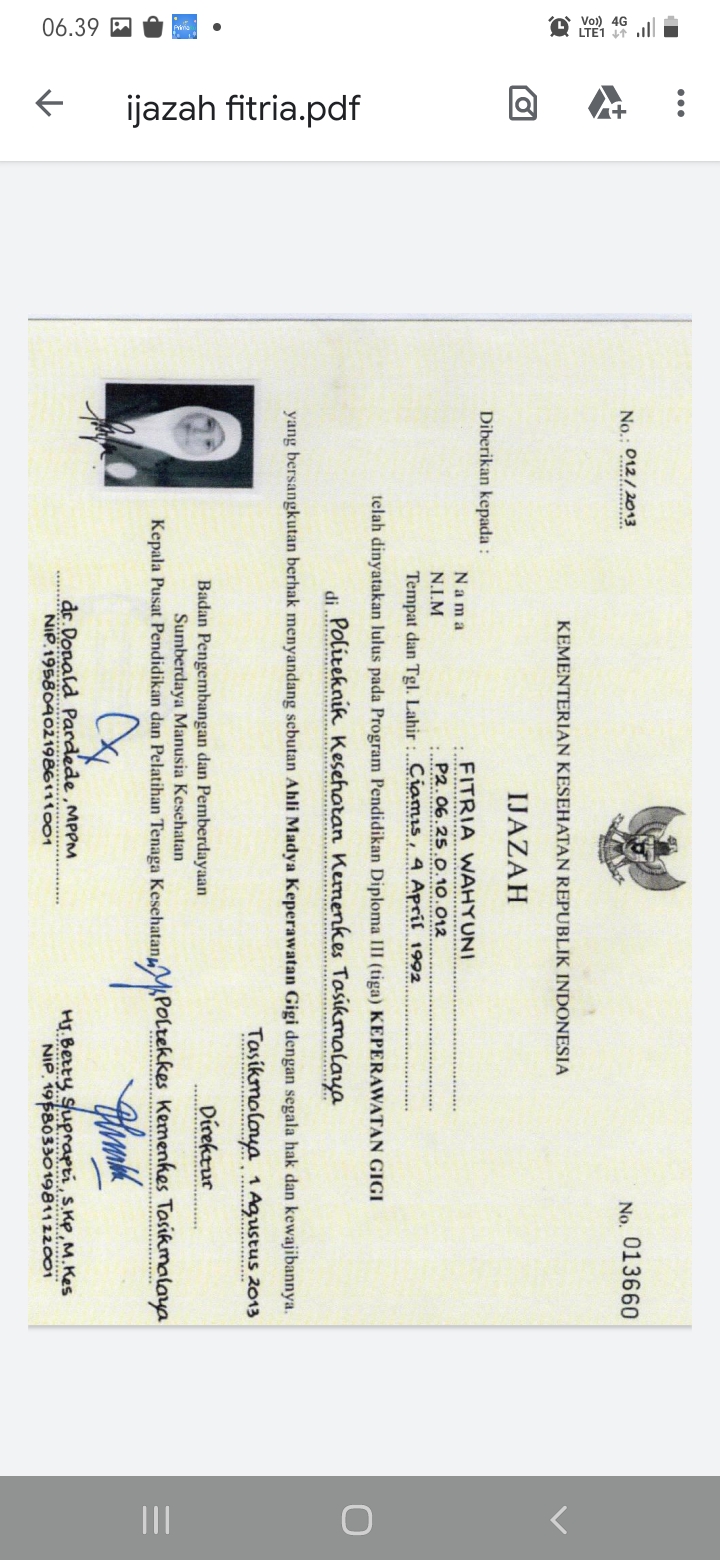 06.39
Vo))
LTE1
4G
ijazah fitria.pdf
No.: 012/2013
No. 013660
KEMENTERIAN KESEHATAN REPUBLIK INDONESIA
IJAZAH
Diberikan kepada :
N a m a : FITRIA WAHYUNI
N.I.M : P2.06.25.0.10.012
Tempat dan Tgl. Lahir : Ciamis, 4 April 1992
telah dinyatakan lulus pada Program Pendidikan Diploma III (tiga) KEPERAWATAN GIGI
di Politeknik Kesehatan Kemenkes Tasikmalaya
yang bersangkutan berhak menyandang sebutan Ahli Madya Keperawatan Gigi dengan segala hak dan kewajibannya.
Tasikmalaya, 1 Agustus 2013
Badan Pengembangan dan Pemberdayaan
Sumberdaya Manusia Kesehatan
Kepala Pusat Pendidikan dan Pelatihan Tenaga Kesehatan
Direktur
Poltekkes Kemenkes Tasikmalaya
dr. Donald Pardede, MPPM
NIP.195804021986111001
Hj. Betty Suprapti, S.Kp, M.Kes
NIP. 195803301981122001